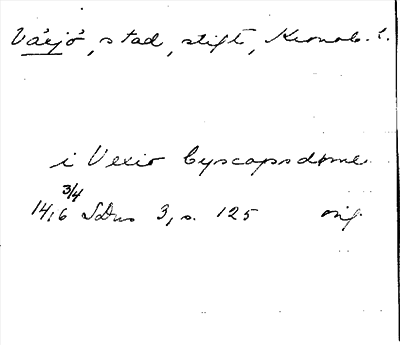 Växjö, stad, stift, Kronob. l.
i Vexio byscopsdøme
3/4
1416 SDns 3, s. 125 orig.